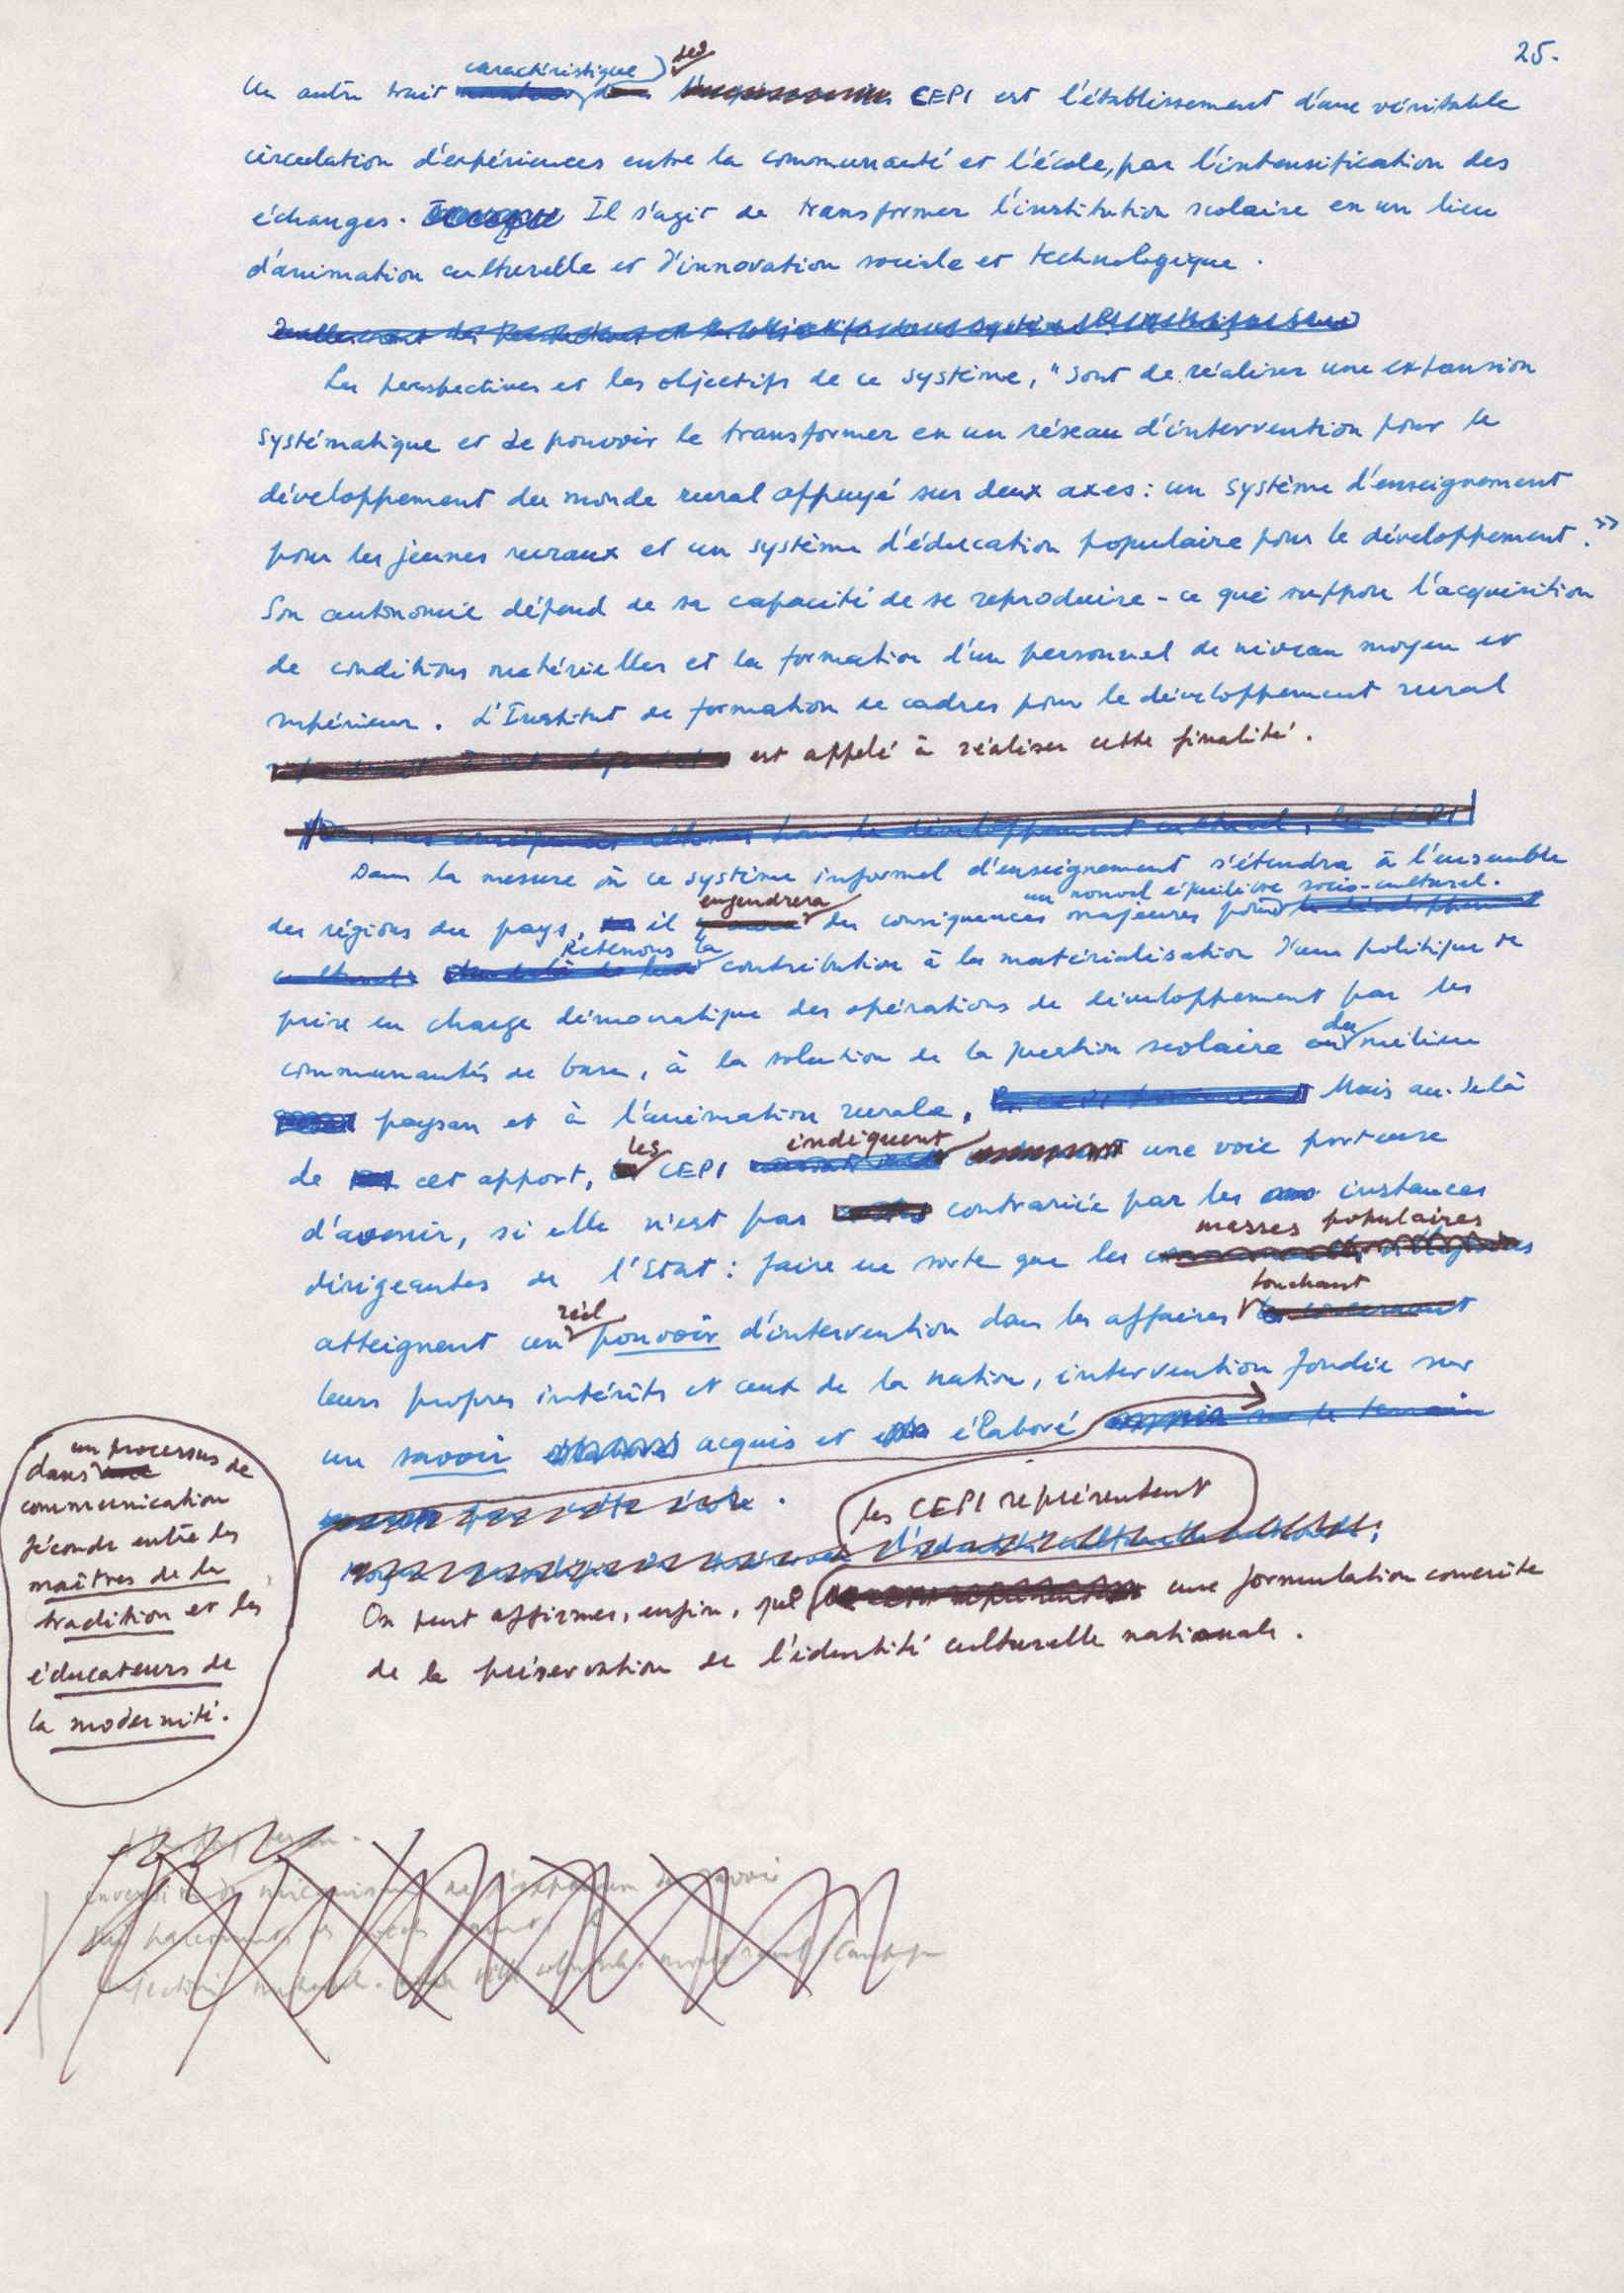 25.
caractéristique des
Un autre trait CEPI est l'établissement d'une véritable
circulation d'expériences entre la communauté et l'école, par l'intensification des
échanges. Il s'agit de transformer l'institution scolaire en un lieu
d'animation culturelle et d'innovation sociale et technologique.
Les perspectives et les objectifs de ce système, "sont de réaliser une expansion
systématique et de pouvoir le transformer en un réseau d'intervention pour le
développement du monde rural appuyé sur deux axes : un système d'enseignement
pour les jeunes ruraux et un système d'éducation populaire pour le développement."
Son autonomie dépend de sa capacité de se reproduire - ce qui suppose l'acquisition
de conditions matérielles et la formation d'un personnel de niveau moyen et
supérieur. L'Institut de formation de cadres pour le développement rural
est appelé à réaliser cette finalité.
Dans la mesure où ce système informel d'enseignement s'étendra à l'ensemble
engendrera un nouvel équilibre socio-culturel.
des régions du pays, il des conséquences majeures pour
Retenons la
contribution à la matérialisation d'une politique de
prise en charge démocratique des opérations de développement par les
communautés de base, à la solution de la question scolaire du milieu
paysan et à l'animation rurale. Mais au-delà
les indiquent
de cet apport, CEPI une voie porteuse
d'avenir, si elle n'est pas contrariée par les instances
masses populaires
dirigeantes de l'Etat : faire en sorte que les
touchant
réel
atteignent un pouvoir d'intervention dans les affaires
leurs propres intérêts et ceux de la nation, intervention fondée sur
un savoir acquis et élaboré
un processus de
dans
communication
féconde entre les
maîtres de la
tradition et les
éducateurs de
la modernité.
les CEPI représentent
On peut affirmer, enfin, que une formulation concrète
de la préservation de l'identité culturelle nationale.